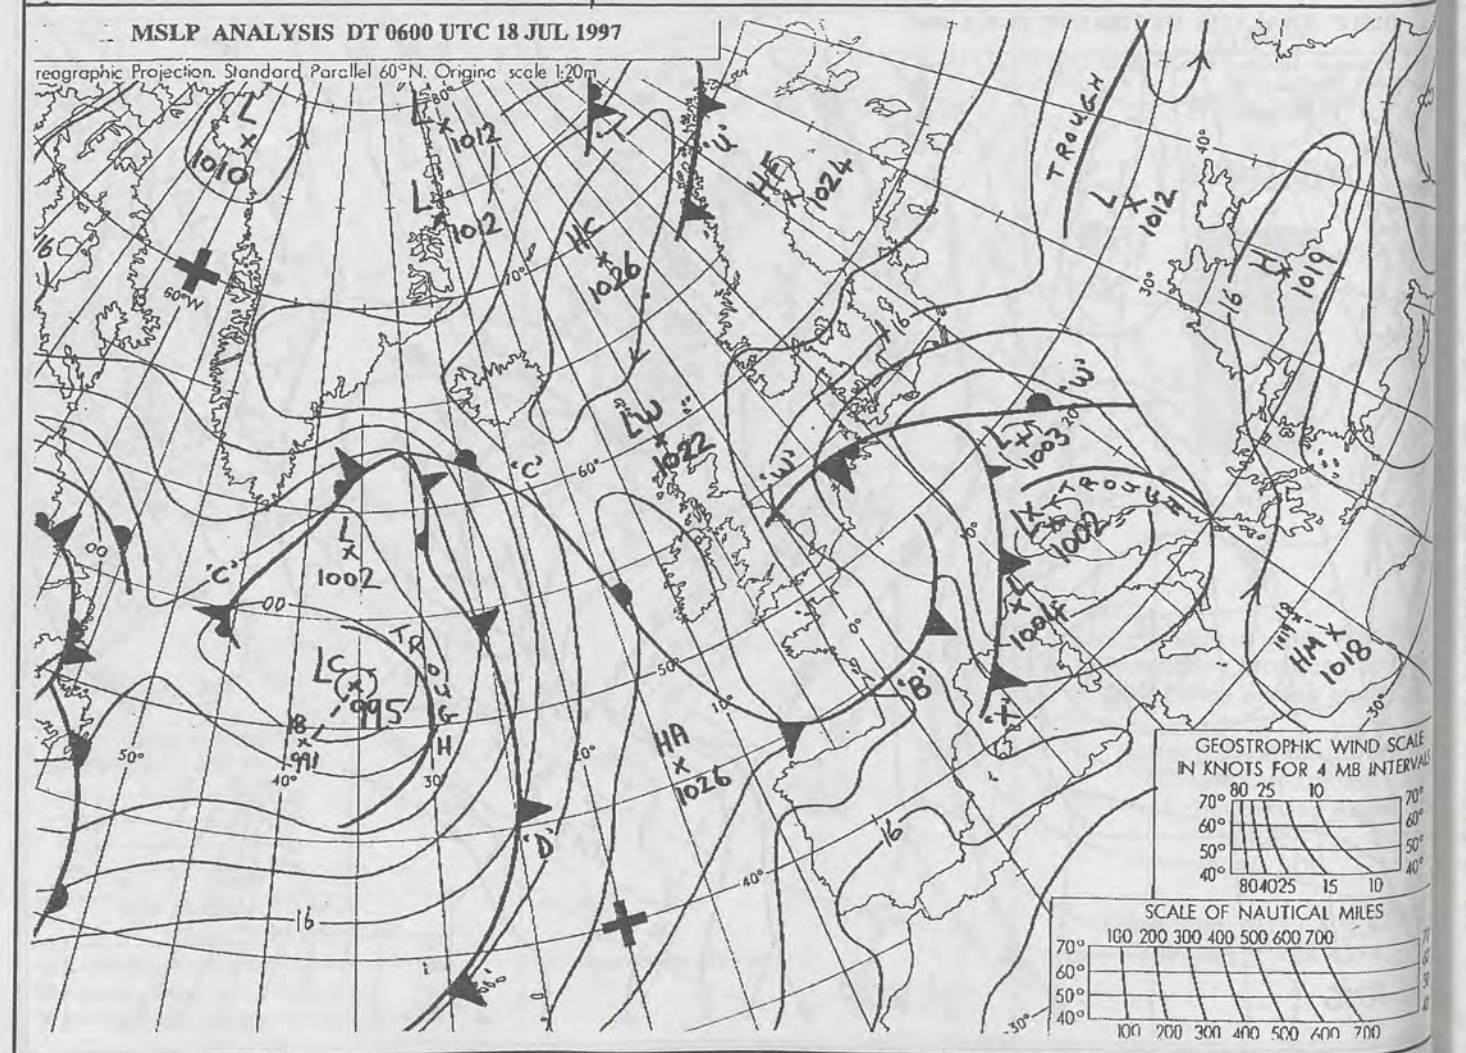 MSLP ANALYSIS DT 0600 UTC 18 JUL 1997
reographic Projection. Standard Parallel 60°N. Origina scale 1:20m
L
1010
80°
L
1012
L
1012
16
60°W
70°
HC
1026
'U'
HF
1024
TROUGH
40°
L
1012
30°
H
1019
16
16
LW
1022
'W'
'W'
20°
L
1003
TROUGH
L
1002
10°
L
1004
HM
1018
30°
'C'
60°
00
'C'
L
1002
00
TROUGH
LC
995
991
50°
40°
30
20°
50°
10°
0°
'B'
HA
1026
'D'
40°
16
16
30°
GEOSTROPHIC WIND SCALE
IN KNOTS FOR 4 MB INTERVALS
80 25 10
70° 70°
60° 60°
50° 50°
40° 40°
80 40 25 15 10
SCALE OF NAUTICAL MILES
100 200 300 400 500 600 700
70°
60°
50°
40°
100 200 300 400 500 600 700